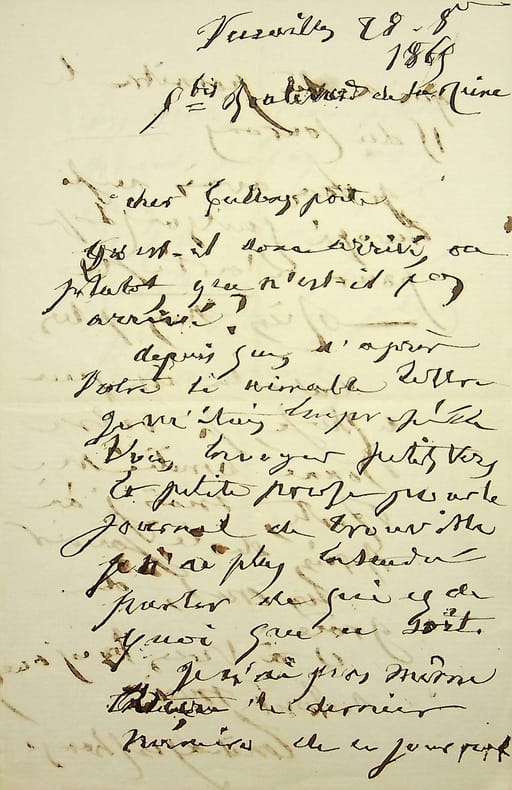 Versailles 28 - 8bre
1865
5bis Boulevard de la Reine
cher
Qu'est-il donc arrivé, ou
plutôt que n'est-il pas
arrivé?
depuis que, d'après
Votre si aimable lettre
je m'étais
Vous envoyer petits vers
et petite prose pour le
journal de Trouville
je n'ai plus entendu
parler de qui et de
quoi que ce soit.
je n'ai pas même
le dernier
numéro de ce journal